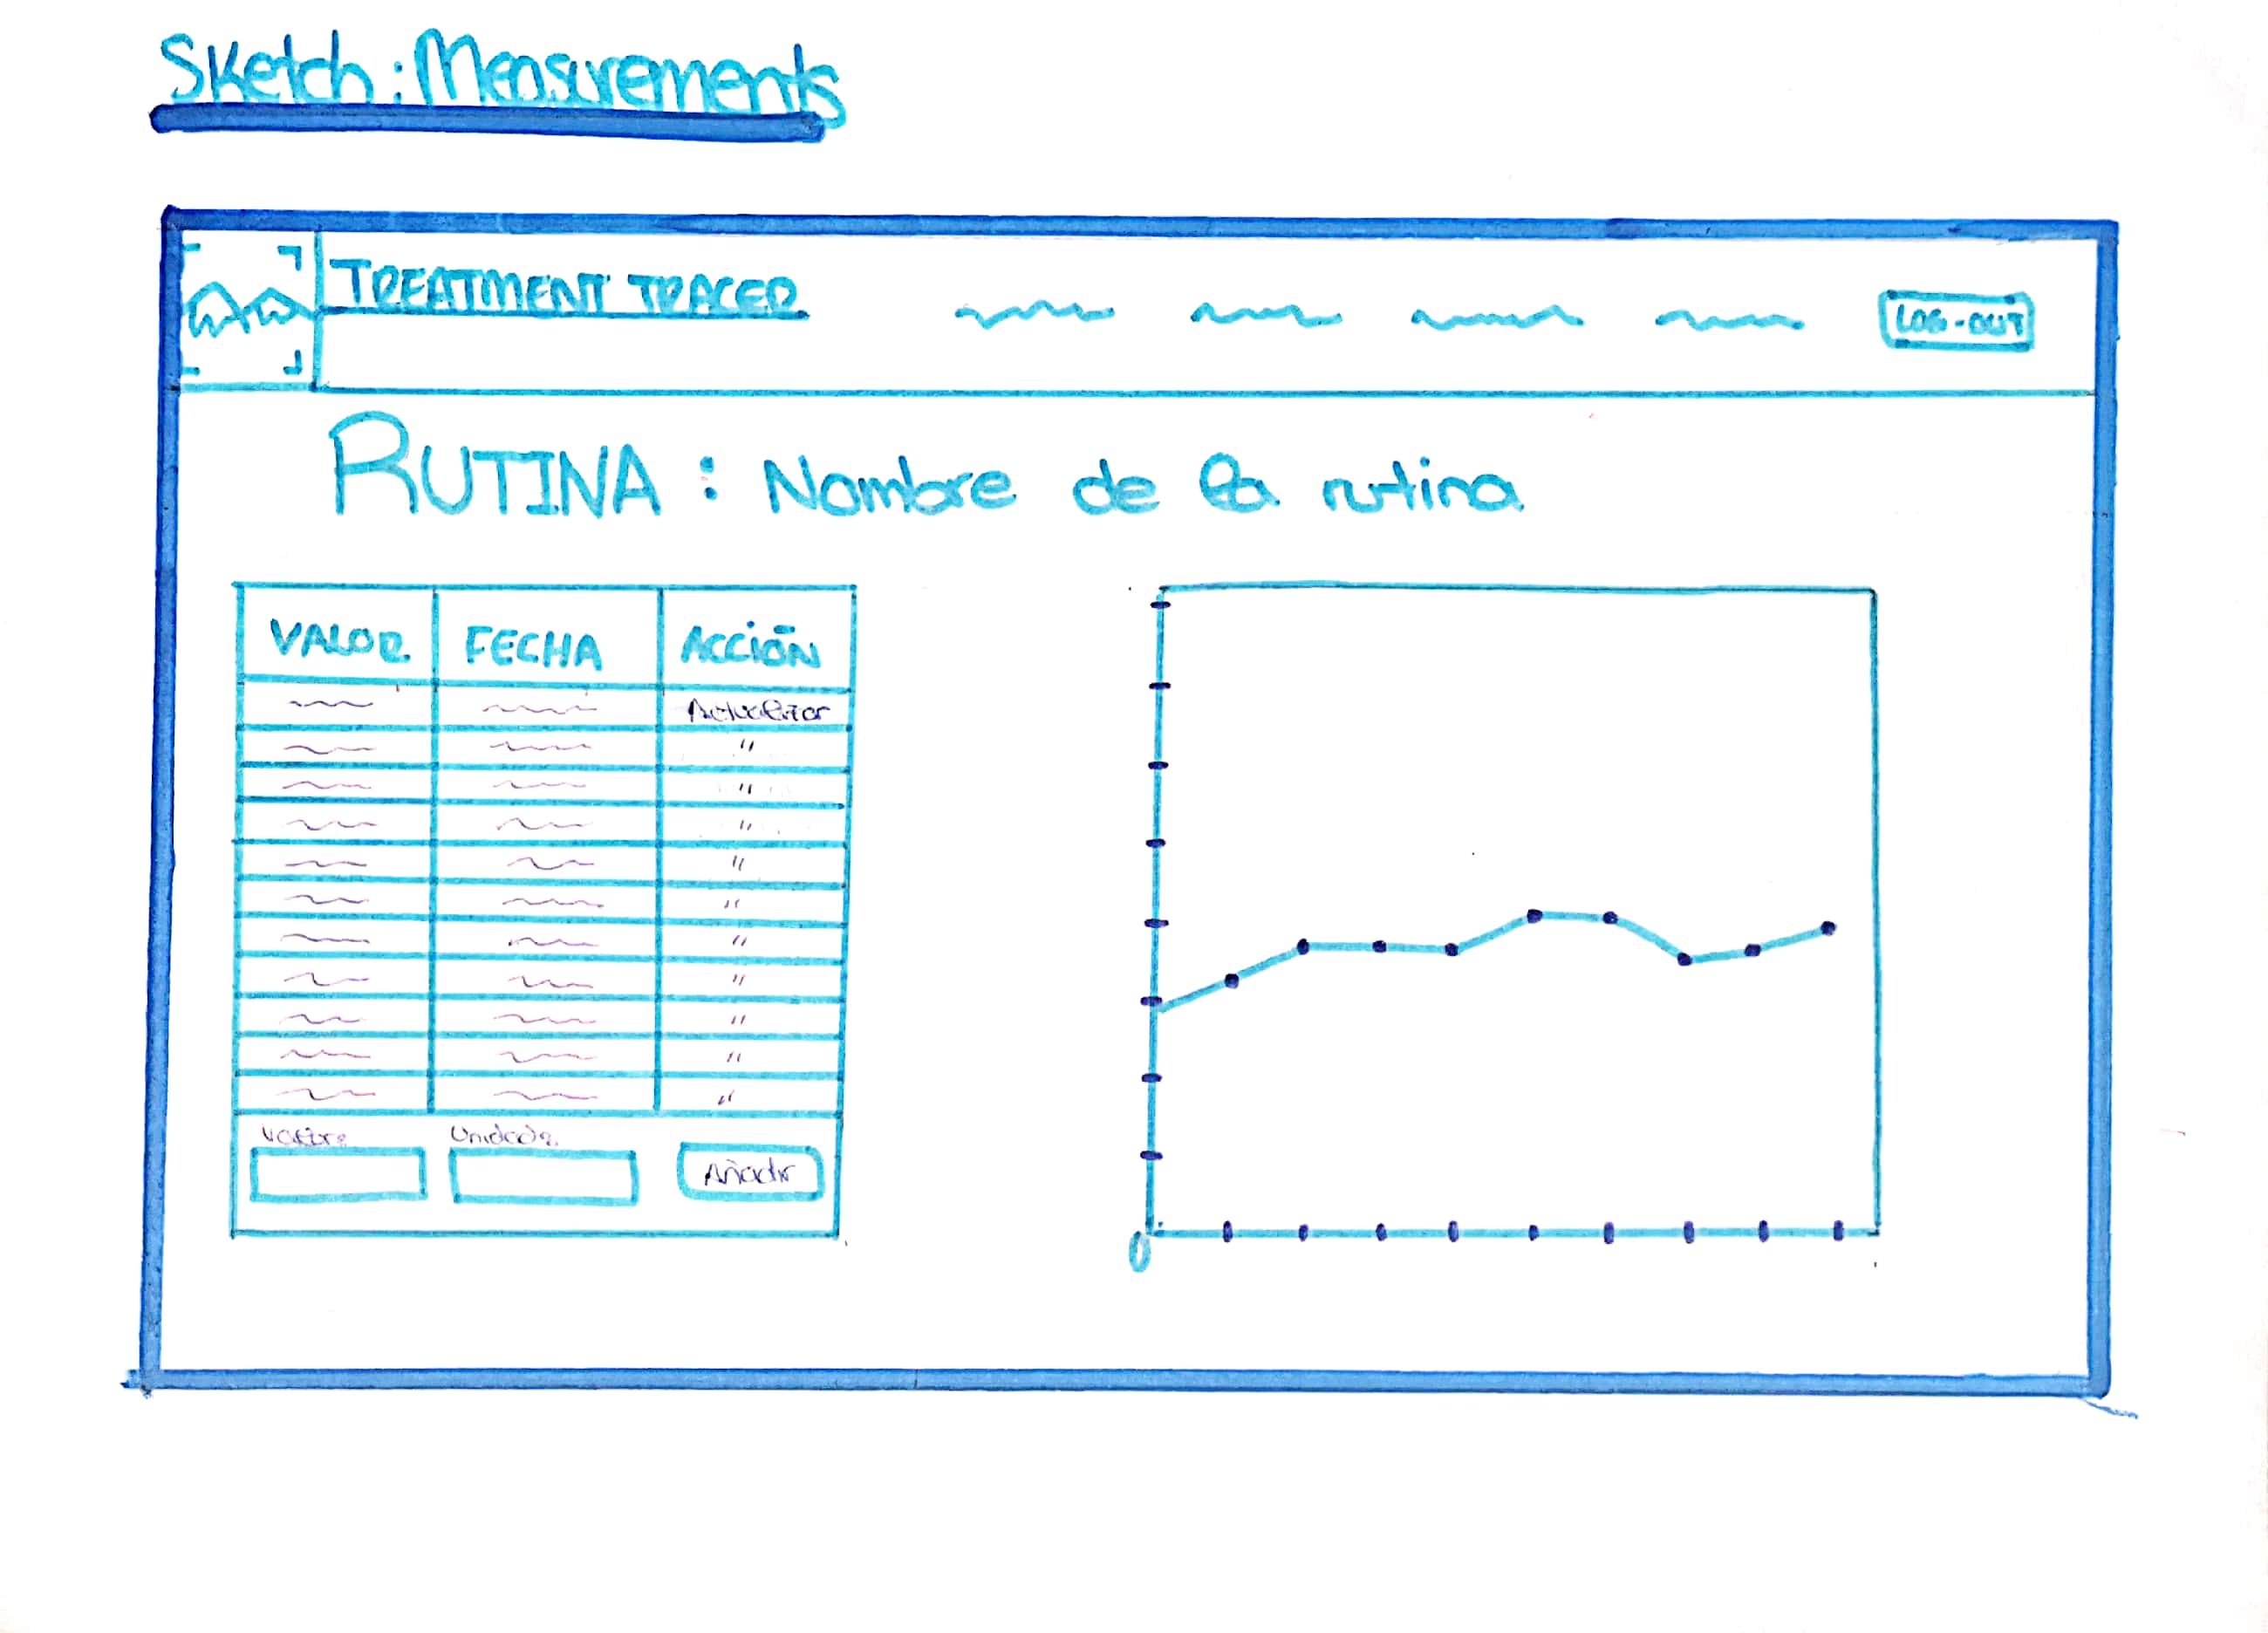 Sketch: Measurements
TREATMENT TRACER
LOG-OUT
RUTINA: Nombre de la rutina
VALOR FECHA ACCIÓN
Actualizar
"
"
"
"
"
"
"
"
"
"
Unidade
Añadir
0